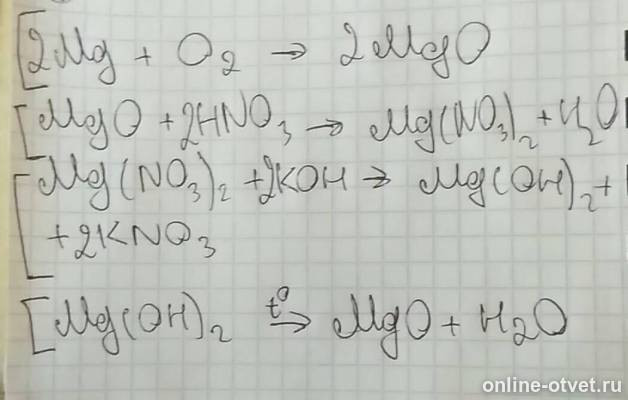 [2Mg + O₂ → 2MgO
[MgO + 2HNO₃ → Mg(NO₃)₂ + H₂O
[Mg(NO₃)₂ + 2KOH → Mg(OH)₂ +
+ 2KNO₃
[Mg(OH)₂ t° → MgO + H₂O
online-otvet.ru